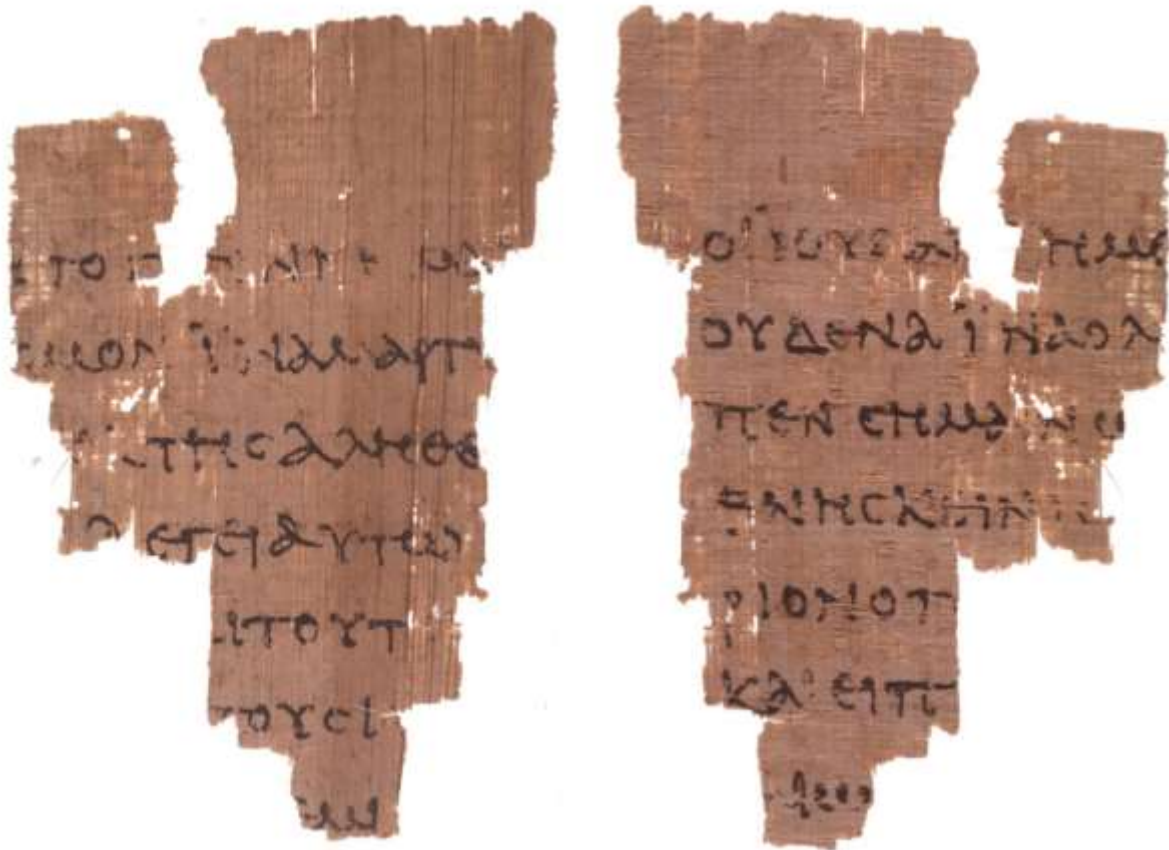 ΤΟ
ϹΜΟΝ ΪΝΑ ΜΑΡΤΥ
ΤΗϹ ΑΛΗΘΕ
ΛΕΓΕΙ ΑΥΤΩ
ΑΙ ΤΟΥΤ
ΤΟΥϹ Ι
ΜΙ
ΟΙ ΪΟΥΔΑΙ ΗΜΕ
ΟΥΔΕΝΑ ΪΝΑ Ο Λ
ΠΕΝ ϹΗΜΑΙΝΩ
ΘΝΗϹΚΕΙΝ
ΡΙΟΝ Ο Π
ΚΑΙ ΕΙΠ